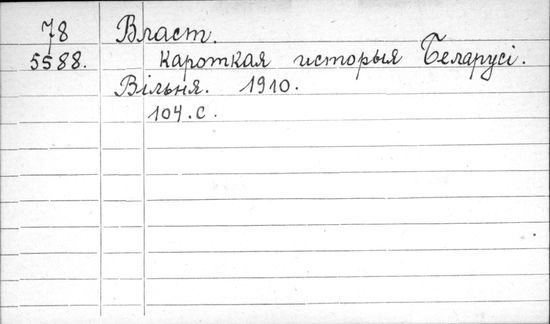 78 Власт.
5588. Кароткая исторыя Беларусі.
Вільня. 1910.
104.с.